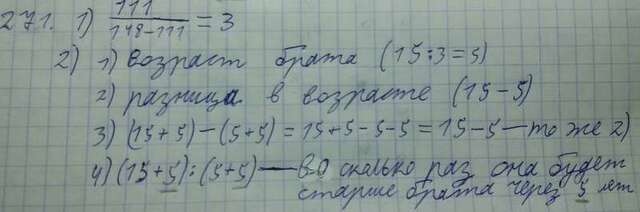 271. 1) 111/148-111 = 3
2) 1) возраст брата (15:3=5)
2) разница в возрасте (15-5)
3) (15+5)-(5+5) = 15+5-5-5 = 15-5 — то же 2)
4) (15+5):(5+5) — во сколько раз она будет
старше брата через 5 лет